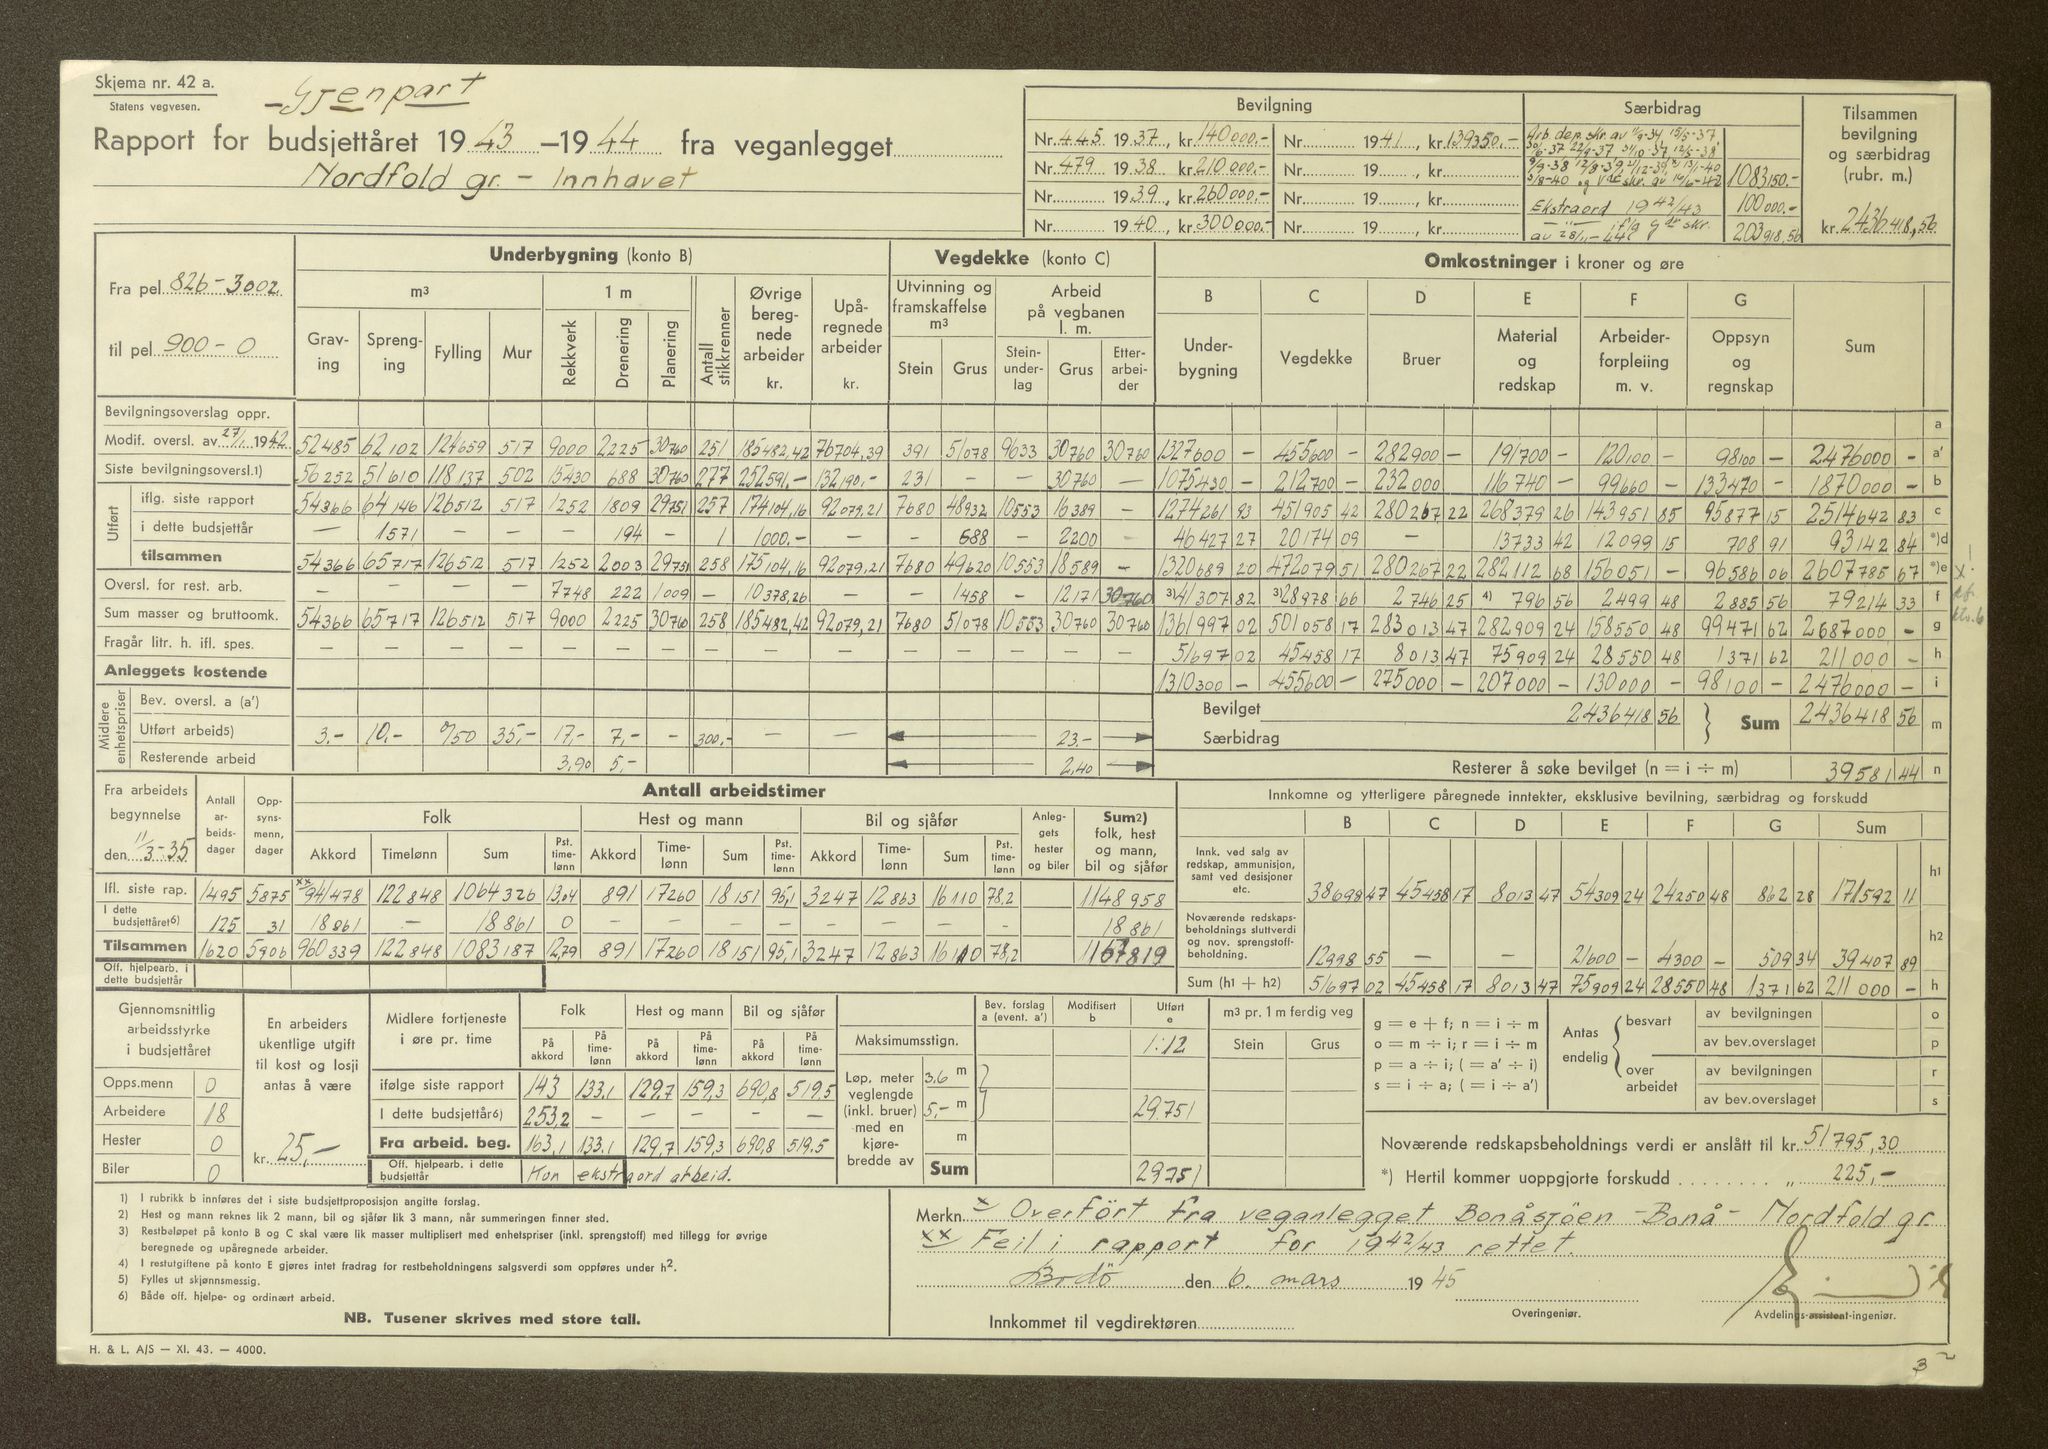 Skjema nr. 42 a.
Statens vegvesen.
Gjenpart
Rapport for budsjettåret 1943 –1944 fra veganlegget
Nordfold gr. – Innhavet
Bevilgning
Nr. 445 1937, kr. 140000.-  Nr. 1941, kr. 139350.-
Nr. 479 1938 kr. 210000.-  Nr. 19 , kr.
Nr. 1939, kr. 260000.-  Nr. 19 , kr.
Nr. 1940, kr. 300000.-  Nr. 19 , kr.
Særbidrag
Arb. dep. skr. av 11/9-34, 15/5-37
1083150.-
Ekstraord 1942/43 100000.-
av 28/1-44 203918,56
Tilsammen bevilgning og særbidrag (rubr. m.)
kr. 2436418,56
Fra pel 826-3002
til pel 900-0
Underbygning (konto B)
m³ 1 m
Graving Sprenging Fylling Mur Rekkverk Drenering Planering Antall stikkrenner Øvrige beregnede arbeider kr. Upåregnede arbeider kr.
Vegdekke (konto C)
Utvinning og framskaffelse m³ Arbeid på vegbanen l. m.
Stein Grus Steinunderlag Grus Etterarbeider
Omkostninger i kroner og øre
B C D E F G
Underbygning Vegdekke Bruer Material og redskap Arbeiderforpleiing m. v. Oppsyn og regnskap Sum
Bevilgningsoverslag oppr. a
Modif. oversl. av 27/1 1942 52485 62102 124659 517 9000 2225 30760 251 185482,42 76704,39 391 51078 9633 30760 30760 1327600 – 455600 – 282900 – 191700 – 120100 – 98100 – 2476000 – a'
Siste bevilgningsoversl.1) 56252 51610 118137 502 15430 688 30760 277 252591,- 132190.- 231 – – 30760 — 1075430 – 212700 – 232000 116740 – 99660 – 133470 – 1870000 – b
Utført
iflg. siste rapport 54366 64146 126512 517 1252 1809 29751 257 174104,16 92079,21 7680 48932 10553 16389 – 1274261 93 451905 42 280267 22 268379 26 143951 85 95877 15 2514642 83 c
i dette budsjettår — 1571 — — 194 – 1 1000.- — – 688 – 2200 – 46427 27 20174 09 — 13733 42 12099 15 708 91 93142 84 *)d
tilsammen 54366 65717 126512 517 1252 2003 29751 258 175104,16 92079,21 7680 49620 10553 18589 – 1320689 20 472079 51 280267 22 282112 68 156051 – 96586 06 2607785 67 *)e
Oversl. for rest. arb. – – – – 7748 222 1009 – 10378,26 – – 1458 – 12171 30760 3)41307 82 3)28978 66 2746 25 4) 796 56 2499 48 2885 56 79214 33 f
Sum masser og bruttoomk. 54366 65717 126512 517 9000 2225 30760 258 185482,42 92079,21 7680 51078 10553 30760 30760 1361997 02 501058 17 283013 47 282909 24 158550 48 99471 62 2687000 – g
Fragår litr. h. ifl. spes. – – – – – – – – – – – – – – – 51697 02 45458 17 8013 47 75909 24 28550 48 1371 62 211000 – h
Anleggets kostende 1310300 – 455600 – 275000 – 207000 – 130000 – 98100 – 2476000 – i
Midlere enhetspriser
Bev. oversl. a (a')
Utført arbeid5) 3.- 10.- 0/50 35,- 17,- 7,- – 300.- — — 23.-
Resterende arbeid 3,90 5,- 2,40
Bevilget 2436418 56 } Sum 2436418 56 m
Særbidrag
Resterer å søke bevilget (n = i ÷ m) 39581 44 n
Fra arbeidets begynnelse den 11/3-35
Antall arbeidsdager
Oppsynsmenn, dager
Antall arbeidstimer
Folk Hest og mann Bil og sjåfør Anleggets hester og biler Sum2) folk, hest og mann, bil og sjåfør
Akkord Timelønn Sum Pst. timelønn Akkord Timelønn Sum Pst. timelønn Akkord Timelønn Sum Pst. timelønn
Ifl. siste rap. 1495 5875 xx 941478 122848 1064326 13,04 891 17260 18151 95,1 3247 12863 16110 78,2 1148958
I dette budsjettåret6) 125 31 18861 – 18861 0 – – – – – – – – 18861
Tilsammen 1620 5906 960339 122848 1083187 12,79 891 17260 18151 95,1 3247 12863 16110 78,2 1167819
Off. hjelpearb. i dette budsjettår
Innkomne og ytterligere påregnede inntekter, eksklusive bevilning, særbidrag og forskudd
B C D E F G Sum
Innk. ved salg av redskap, ammunisjon, samt ved desisjoner etc. 38698 47 45458 17 8013 47 54309 24 24250 48 862 28 171592 11 h1
Noværende redskapsbeholdnings sluttverdi og nov. sprengstoffbeholdning. 12998 55 – – 21600 – 4300 – 509 34 39407 89 h2
Sum (h1 + h2) 51697 02 45458 17 8013 47 75909 24 28550 48 1371 62 211000 – h
Gjennomsnittlig arbeidsstyrke i budsjettåret
Opps.menn 0
Arbeidere 18
Hester 0
Biler 0
En arbeiders ukentlige utgift til kost og losji antas å være
kr. 25,-
Midlere fortjeneste i øre pr. time
Folk Hest og mann Bil og sjåfør
På akkord På timelønn På akkord På timelønn På akkord På timelønn
ifølge siste rapport 143 133,1 129,7 159,3 690,8 519,5
I dette budsjettår6) 253,2 – – – – –
Fra arbeid. beg. 163,1 133,1 129,7 159,3 690,8 519,5
Off. hjelpearb. i dette budsjettår Kon ekstraord arbeid.
Bev. forslag a (event. a') Modifisert b Utført e
Maksimumsstign. 1:12
Løp, meter veglengde (inkl. bruer) med en kjørebredde av
3,6 m
5,- m 29751
m
Sum 29751
m3 pr. 1 m ferdig veg
Stein Grus
g = e + f; n = i ÷ m
o = m ÷ i; r = i ÷ m
p = a ÷ i; ( = a' ÷ i)
s = i ÷ a; ( = i ÷ a')
Antas endelig
besvart av bevilgningen o
av bev.overslaget p
over arbeidet av bevilgningen r
av bev.overslaget s
Noværende redskapsbeholdnings verdi er anslått til kr. 51795,30
*) Hertil kommer uoppgjorte forskudd . . . . . . . . „ 225,-
1) I rubrikk b innføres det i siste budsjettproposisjon angitte forslag.
2) Hest og mann reknes lik 2 mann, bil og sjåfør lik 3 mann, når summeringen finner sted.
3) Restbeløpet på konto B og C skal være lik masser multiplisert med enhetspriser (inkl. sprengstoff) med tillegg for øvrige
beregnede og upåregnede arbeider.
4) I restutgiftene på konto E gjøres intet fradrag for restbeholdningens salgsverdi som oppføres under h2.
5) Fylles ut skjønnsmessig.
6) Både off. hjelpe- og ordinært arbeid.
NB. Tusener skrives med store tall.
Merkn. x Overført fra veganlegget Bonåsjöen -Bonå- Nordfold gr
xx Feil i rapport for 1942/43 rettet.
Bodö den 6. mars 1945
Overingeniør.
Avdelings-assistent-ingeniør.
Innkommet til vegdirektøren
H. & L. A/S — XI. 43. — 4000.
3